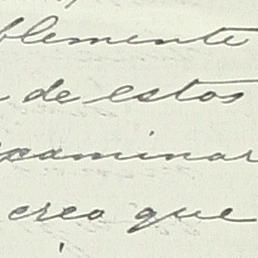 blemente
de estos
examinar
creo que